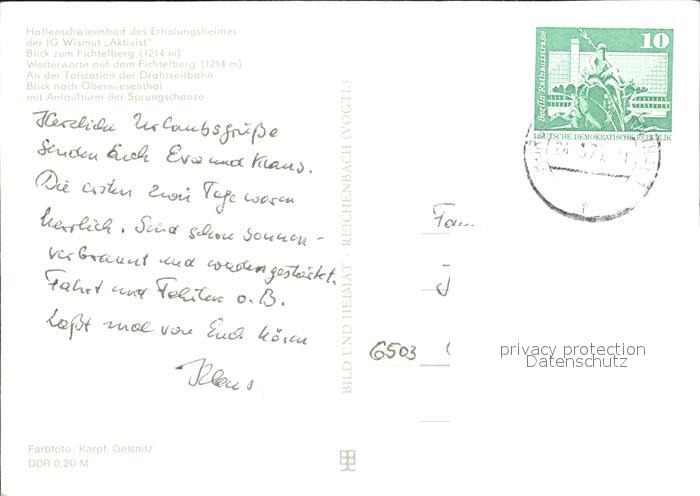 Hallenschwimmbad des Erholungsheimes
der IG Wismut „Aktivist"
Blick zum Fichtelberg (1214 m)
Wetterwarte auf dem Fichtelberg (1214 m)
An der Talstation der Drahtseilbahn
Blick nach Oberwiesenthal
mit Anlaufturm der Sprungschanze
Herzliche Urlaubsgrüße
senden Euch Eva und Klaus.
Die ersten zwei Tage waren
herrlich. Sind schon sonnen-
verbrannt und windengestärkt.
Fahrt und Fahrten o.B.
Laßt mal von Euch hören
Klaus
Farbfoto: Karpf, Oelsnitz
DDR 0,20 M
BILD UND HEIMAT · REICHENBACH (VOGTL)
Berlin Rathausstraße
10
DEUTSCHE DEMOKRATISCHE REPUBLIK
Fam
6503
privacy protection
Datenschutz